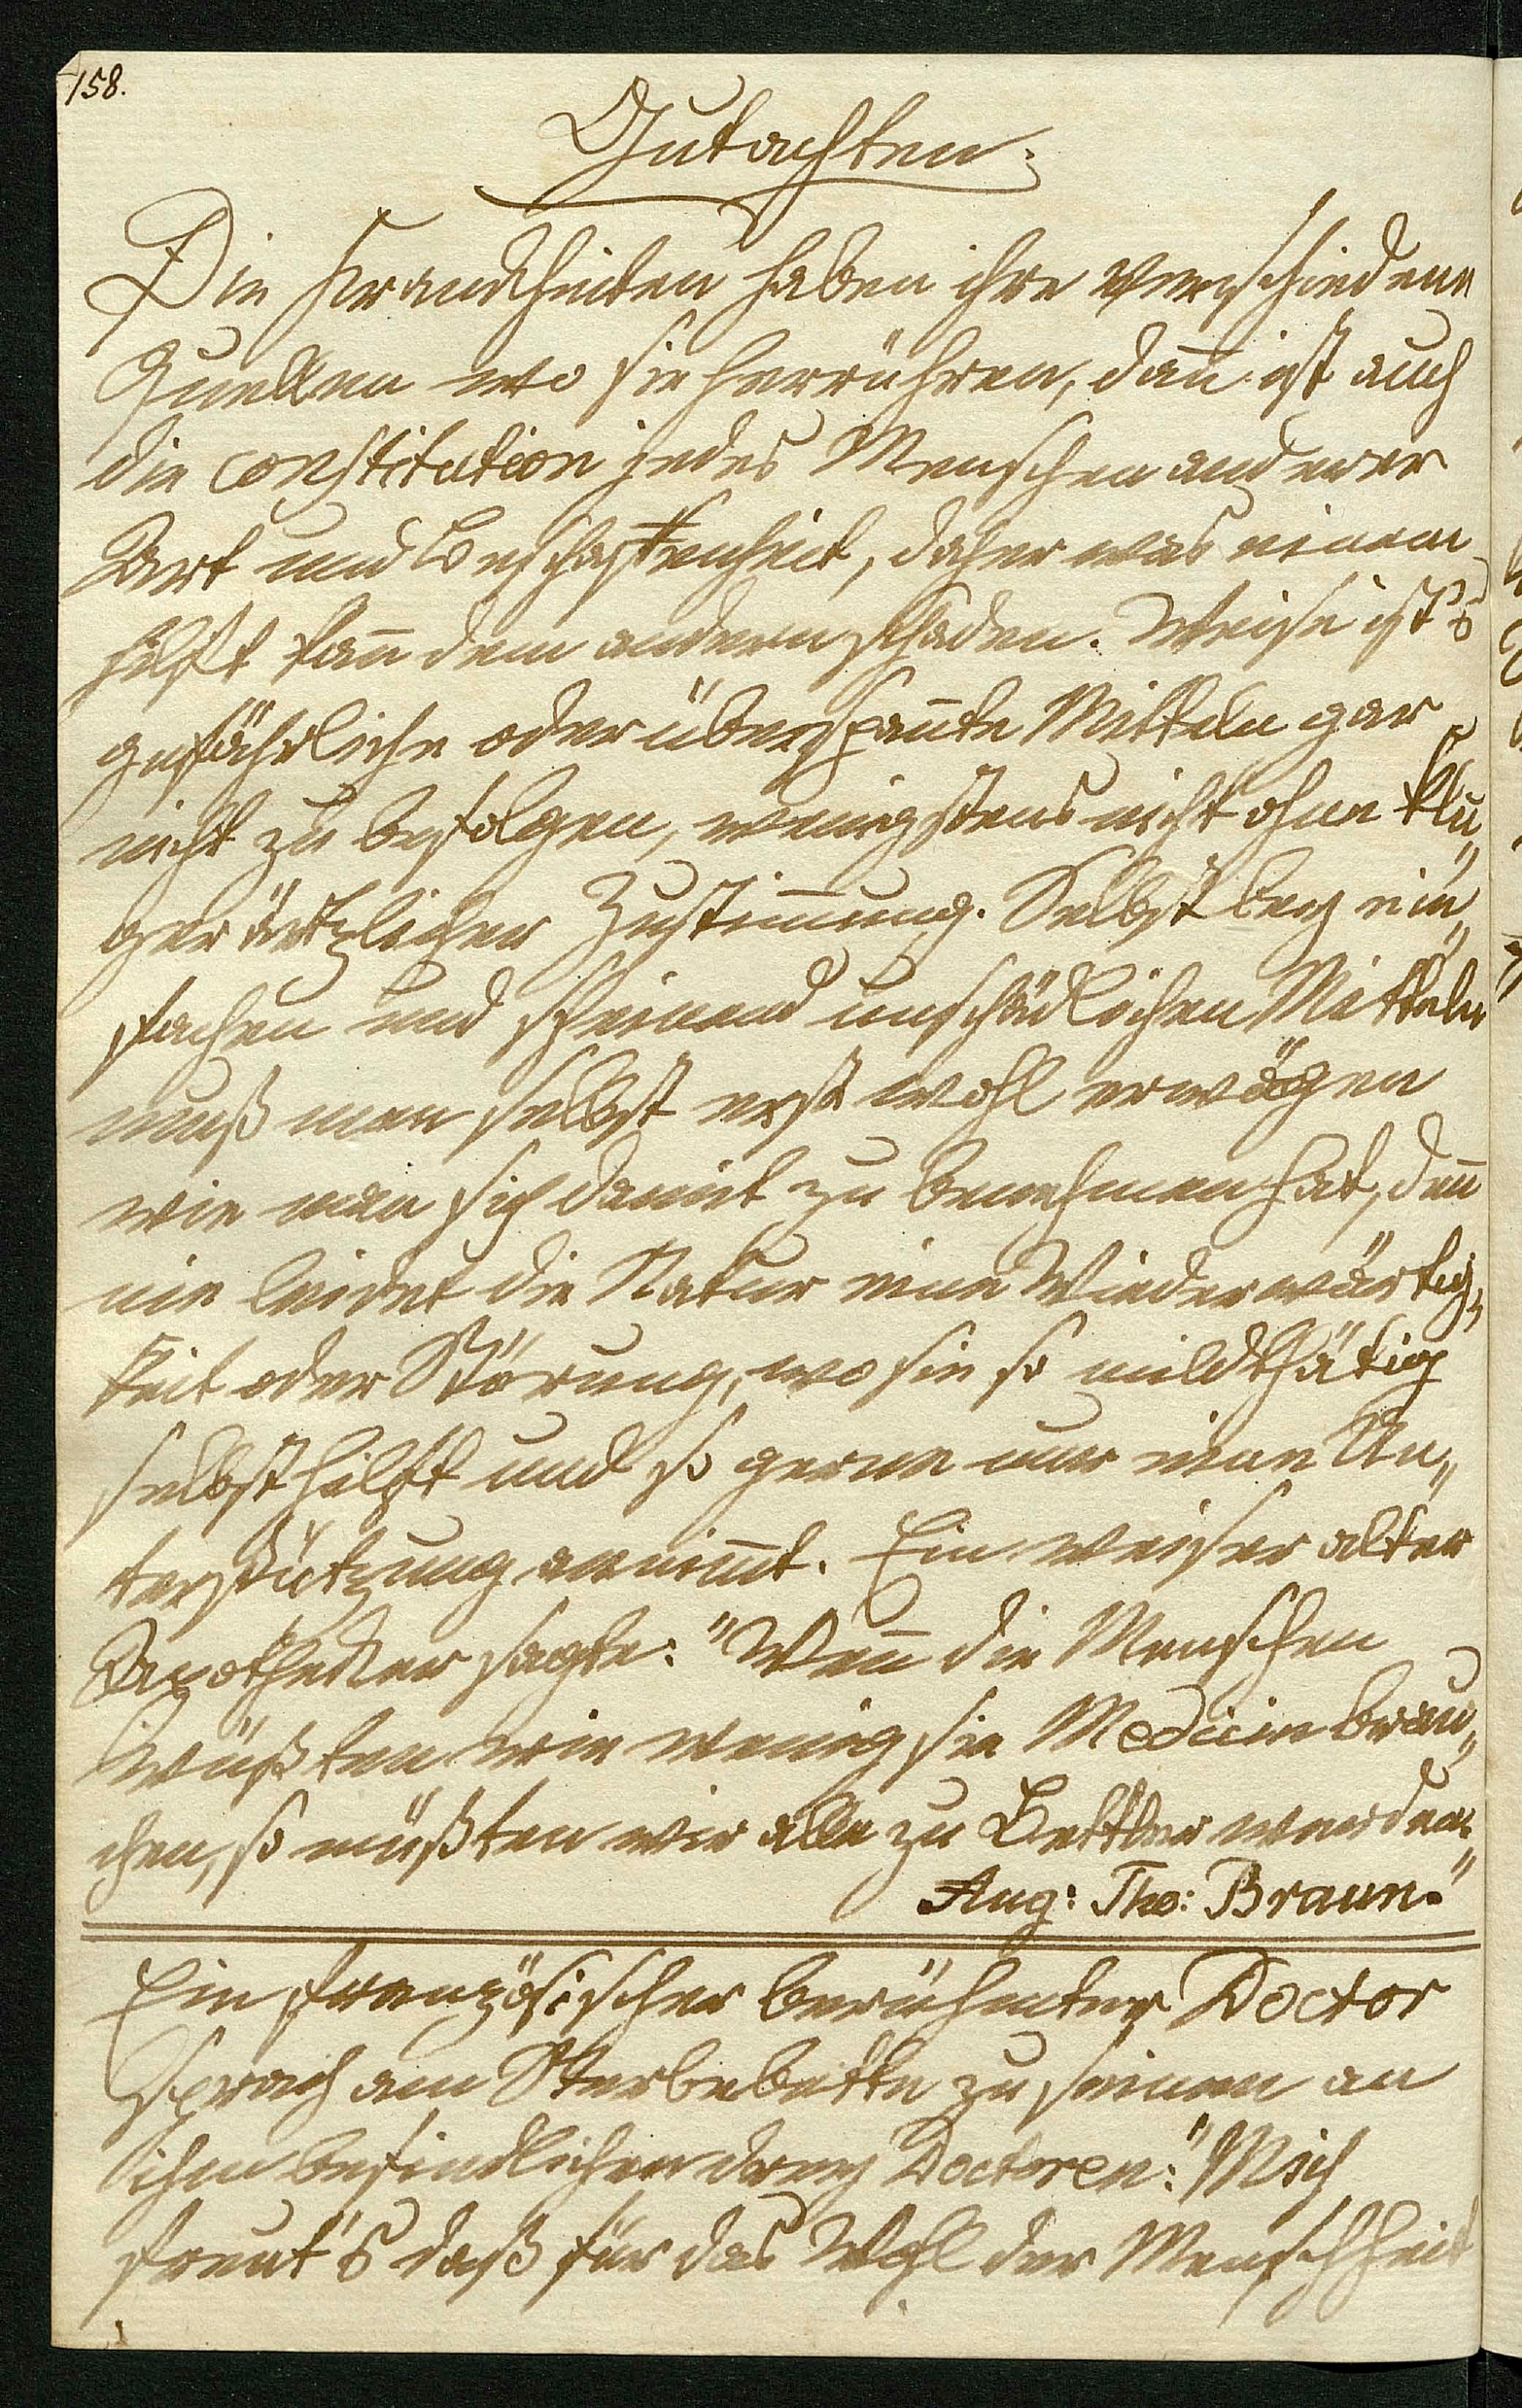 158.
Gutachten:
Die Krankheiten haben ihre verschiedene
Quellen wo sie herrühren, dan̄ ist auch
die constitution jedes Menschen anderer
Art und Beschaffenheit, daher was einem
hilft kan̄ dem andern schaden. Weise ist's
gefährliche oder überspan̄te Mitteln gar
nicht zu befolgen, wenigstens nicht ohne klu„
ger ärtzlicher Zustim̄ung. Selbst bey ein„
fachen und scheinend unschädlichen Mitteln
muß man selbst erst wohl erwägen
wie man sich damit zu benehmen hat, den̄
nie leidet die Natur eine Wiederwärtig„
keit oder Störung, wo sie so mildthätig
selbst hilft und so gerne nur eine Un„
terstützung annim̄t. Ein weiser alter
Apotheker sagte: "Wen̄ die Menschen
wüßten wie wenig sie Medicin brau„
chen, so müßten wir alle zu Bettler werden."
Aug: Tho: Braun."
Ein französischer berühmter Doctor
sprach am Sterbebette zu seinen an
ihm befindlichen drey Doctoren: "Mich
freut's daß für das Wohl der Menschheit